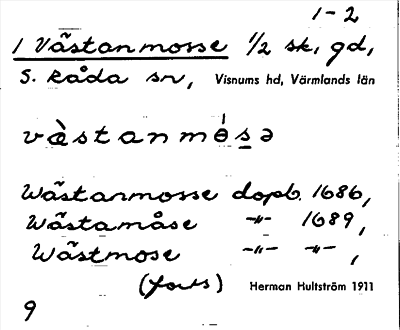 1-2
1 Västanmosse 1/2 sk, gd,
S. Råda sn, Visnums hd, Värmlands län
vä̀stanmósə
Wästanmosse dopb. 1686,
Wästamåse -"- 1689,
Wästmose -"- -"-,
(forts) Herman Hultström 1911
9